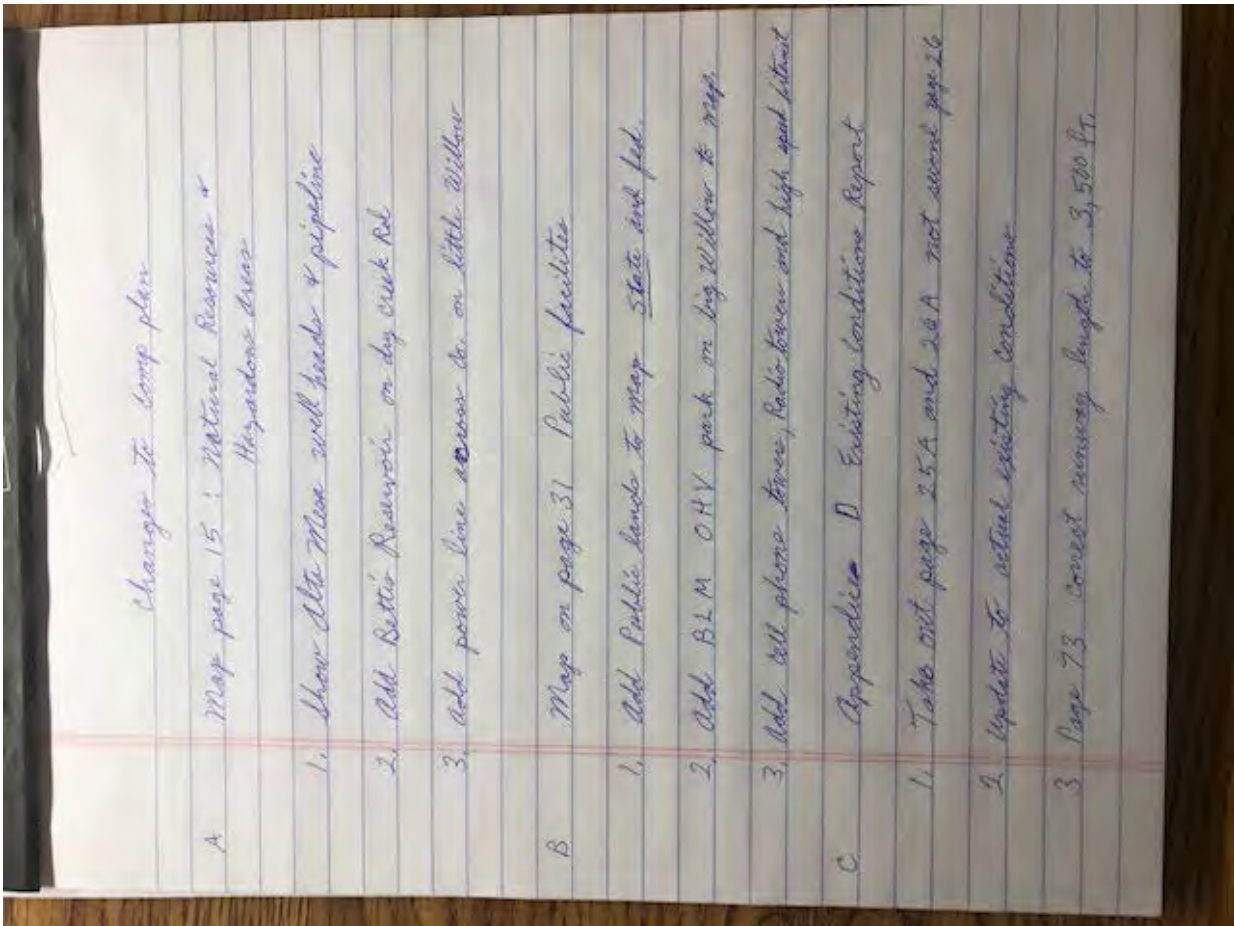 Changes to Comp plan
A Map page 15 : Natural Resources &
Hazardous Areas
1. Show Alta Mesa well heads & pipeline
2. Add Bettis Reservoir on dry creek Rd
3. Add power line across Co. on little Willow
B Map on page 31 Public facilites
1. Add Public lands to map State and fed.
2. Add BLM OHV park on big Willow to map.
3. Add Cell phone towers, Radio towers and high speed
C Appendice D Existing Conditions Report
1. Take out page 25A and 26A not second page 26
2 Update to actual existing Conditions
3 Page 73 correct runway length to 3,500 Ft.